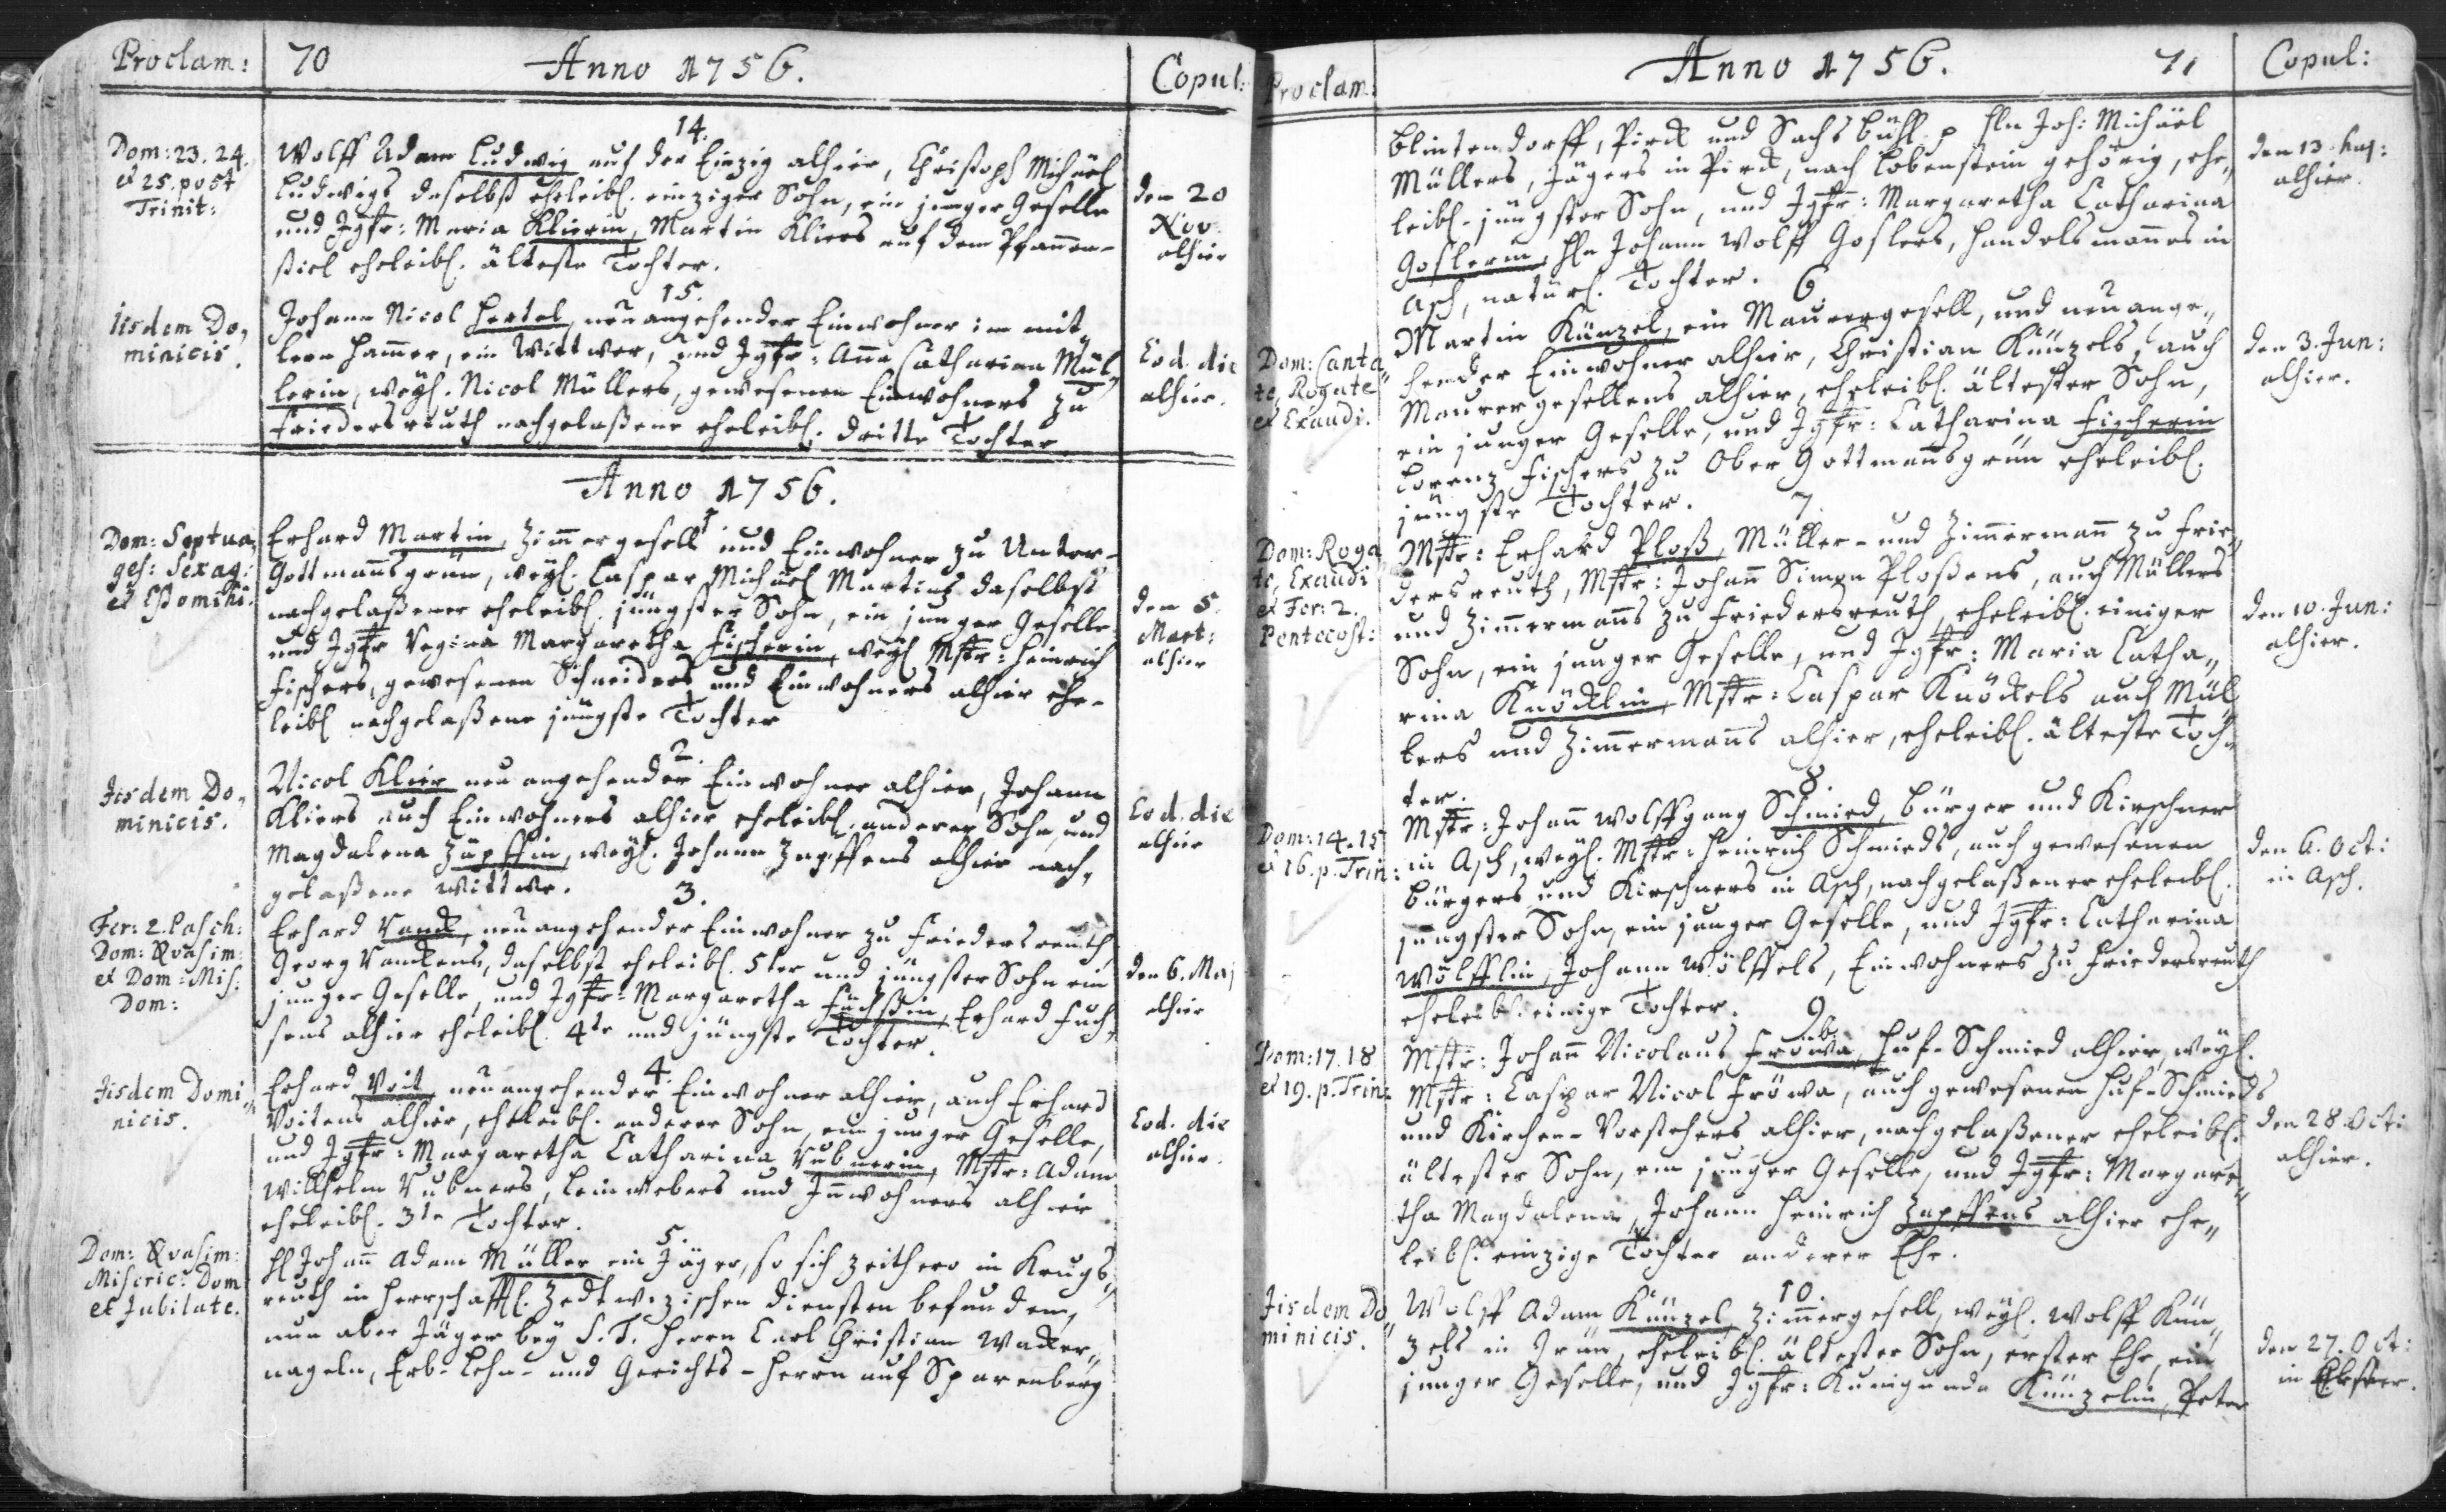 Proclam: 70 Anno 1756. Copul:
14.
Dom: 23. 24.
et 25. post
Trinit:
Wolff Adam Ludwig auf der Einzig alhier, Christoph Michäel
Ludwigs daselbst eheleibl. einziger Sohn, ein junger Geselle
und Jgfr: Maria Klierin, Martin Kliers auf dem Pfannen-
stiel eheleibl. älteste Tochter.
den 20
Nov:
alhier
15.
Iisdem Do,
minicis.
Johann Nicol Hertel, neu angehender Einwohner im mit
lern Hammer, ein Wittwer, und Jgfr: Anna Catharina Mül,
lerin, weyl. Nicol Müllers, gewesenen Einwohners zu
Friedersreuth nachgelaßene eheleibl. dritte Tochter
Eod. die
alhier.
Anno 1756.
1.
Dom: Septua,
ges: Sexag:
et Estomihi.
Erhard Martin, Zimmergesell und Einwohner zu Unter-
Gottmannsgrün, weyl. Caspar Michael Martins daselbst
nachgelaßener eheleibl. jüngster Sohn, ein junger Geselle
und Jgfr Regina Margaretha Fischerin, weyl Mstr: Heinrich
Fischers, gewesenen Schneiders und Einwohners alhier ehe-
leibl nachgelaßene jüngste Tochter
den 5.
Mart:
alhier
2.
Iisdem Do,
minicis.
Nicol Klier neu angehender Einwohner alhier, Johann
Kliers auch Einwohners alhier eheleibl. anderer Sohn, und
Magdalena Zäpffin, weyl. Johann Zapffens alhier nach,
gelaßene Wittwe.
Eod. die
alhier
3.
Fer: 2. Pasch:
Dom: Qvasim:
et Dom: Mis.
Dom:
Erhard Vanck, neuangehender Einwohner zu Friedersreuth,
Georg Vanckens, daselbst eheleibl. 5ter und jüngster Sohn ein
junger Geselle, und Jgfr: Margaretha Füchßin, Erhard Fuch,
sens alhier eheleibl. 4te und jüngste Tochter.
den 6. Maj
alhier
4.
Iisdem Domi,
nicis.
Erhard Voit, neuangehender Einwohner alhier, auch Erhard
Voitens alhier, eheleibl. anderer Sohn, ein junger Geselle,
und Jgfr: Margaretha Catharina Rubnerin, Mstr: Adam
Willhelm Rubners, Leinwebers und Innwohners alhier
eheleibl. 3te Tochter.
Eod. die
alhier.
5.
Dom: Qvasim:
Miseric: Dom
et Jubilate.
H Johann Adam Müller ein Jäger, so sich zeithero in Krugs,
reuth in Herrschafftl. Zedtwizischen Diensten befunden,
nun aber Jäger bey S. T. Herrn Carl Christian Wacker,
nageln, Erb- Lehn- und Gerichts-Herrn auf Sparenberg
Proclam: Anno 1756. 71 Copul:
Blintendorff, Pirck und Sachsbühl p Hln Joh: Michäel
Müllers, Jägers in Pirck, nach Lobenstein gehörig, ehe,
leibl. jüngster Sohn, und Jgfr: Margaretha Catharina
Goslerin, Hln Johann Wolff Goslers, Handelsmannes in
Asch, natürl. Tochter.
den 13. huj:
alhier.
6
Dom: Canta
te, Rogate
et Exaudi.
Martin Künzel, ein Maurergesell, und neuange,
hender Einwohner alhier, Christian Künzels, auch
Maurergesellens alhier, eheleibl. ältester Sohn,
ein junger Geselle, und Jgfr: Catharina Fischerin
Lorenz Fischers zu Ober Gottmannsgrün eheleibl.
jüngste Tochter.
den 3. Jun:
alhier.
7.
Dom: Roga
te, Exaudi
et Fer: 2.
Pentecost:
Mstr: Erhard Ploß, Müller- und Zimmermann zu Frie,
dersreuth, Mstr: Johann Simon Ploßens, auch Müllers
und Zimmermanns zu Friedersreuth, eheleibl. einiger
Sohn, ein junger Geselle, und Jgfr: Maria Catha,
rina Knöcklin, Mstr: Caspar Knöckels auch Mül
lers und Zimmermanns alhier, eheleibl. älteste Toch,
ter.
den 10. Jun:
alhier.
8.
Dom: 14. 15
et 16. p. Trin:
Mstr: Johann Wolffgang Schmied, Bürger und Kirschner
in Asch, weyl. Mstr: Heinrich Schmieds, auch gewesenen
Bürgers und Kirschners in Asch, nachgelaßener eheleibl.
jüngster Sohn, ein junger Geselle, und Jgfr: Catharina
Wölfflin, Johann Wölffels, Einwohners zu Friedersreuth
eheleibl. einige Tochter.
den 6. Oct:
in Asch.
9.
Dom: 17. 18
et 19. p. Trin:
Mstr: Johann Nicolaus Fröwa, Huf-Schmied alhier, weyl.
Mstr: Caspar Nicol Fröwa, auch gewesenen Huf-Schmieds
und Kirchen-Vorstehers alhier, nachgelaßener eheleibl.
ältester Sohn, ein junger Geselle, und Jgfr: Margare,
tha Magdalena, Johann Heinrich Zapffens alhier ehe,
leibl. einzige Tochter anderer Ehe.
den 28. Oct:
alhier.
10.
Iisdem Do
minicis.
Wolff Adam Künzel, Zimmergesell, weyl. Wolff Kün,
zels in Grün, eheleibl. ältester Sohn, erster Ehe, ein
junger Geselle, und Jgfr: Kunigunda Künzelin, Peter
den 27. Oct:
in